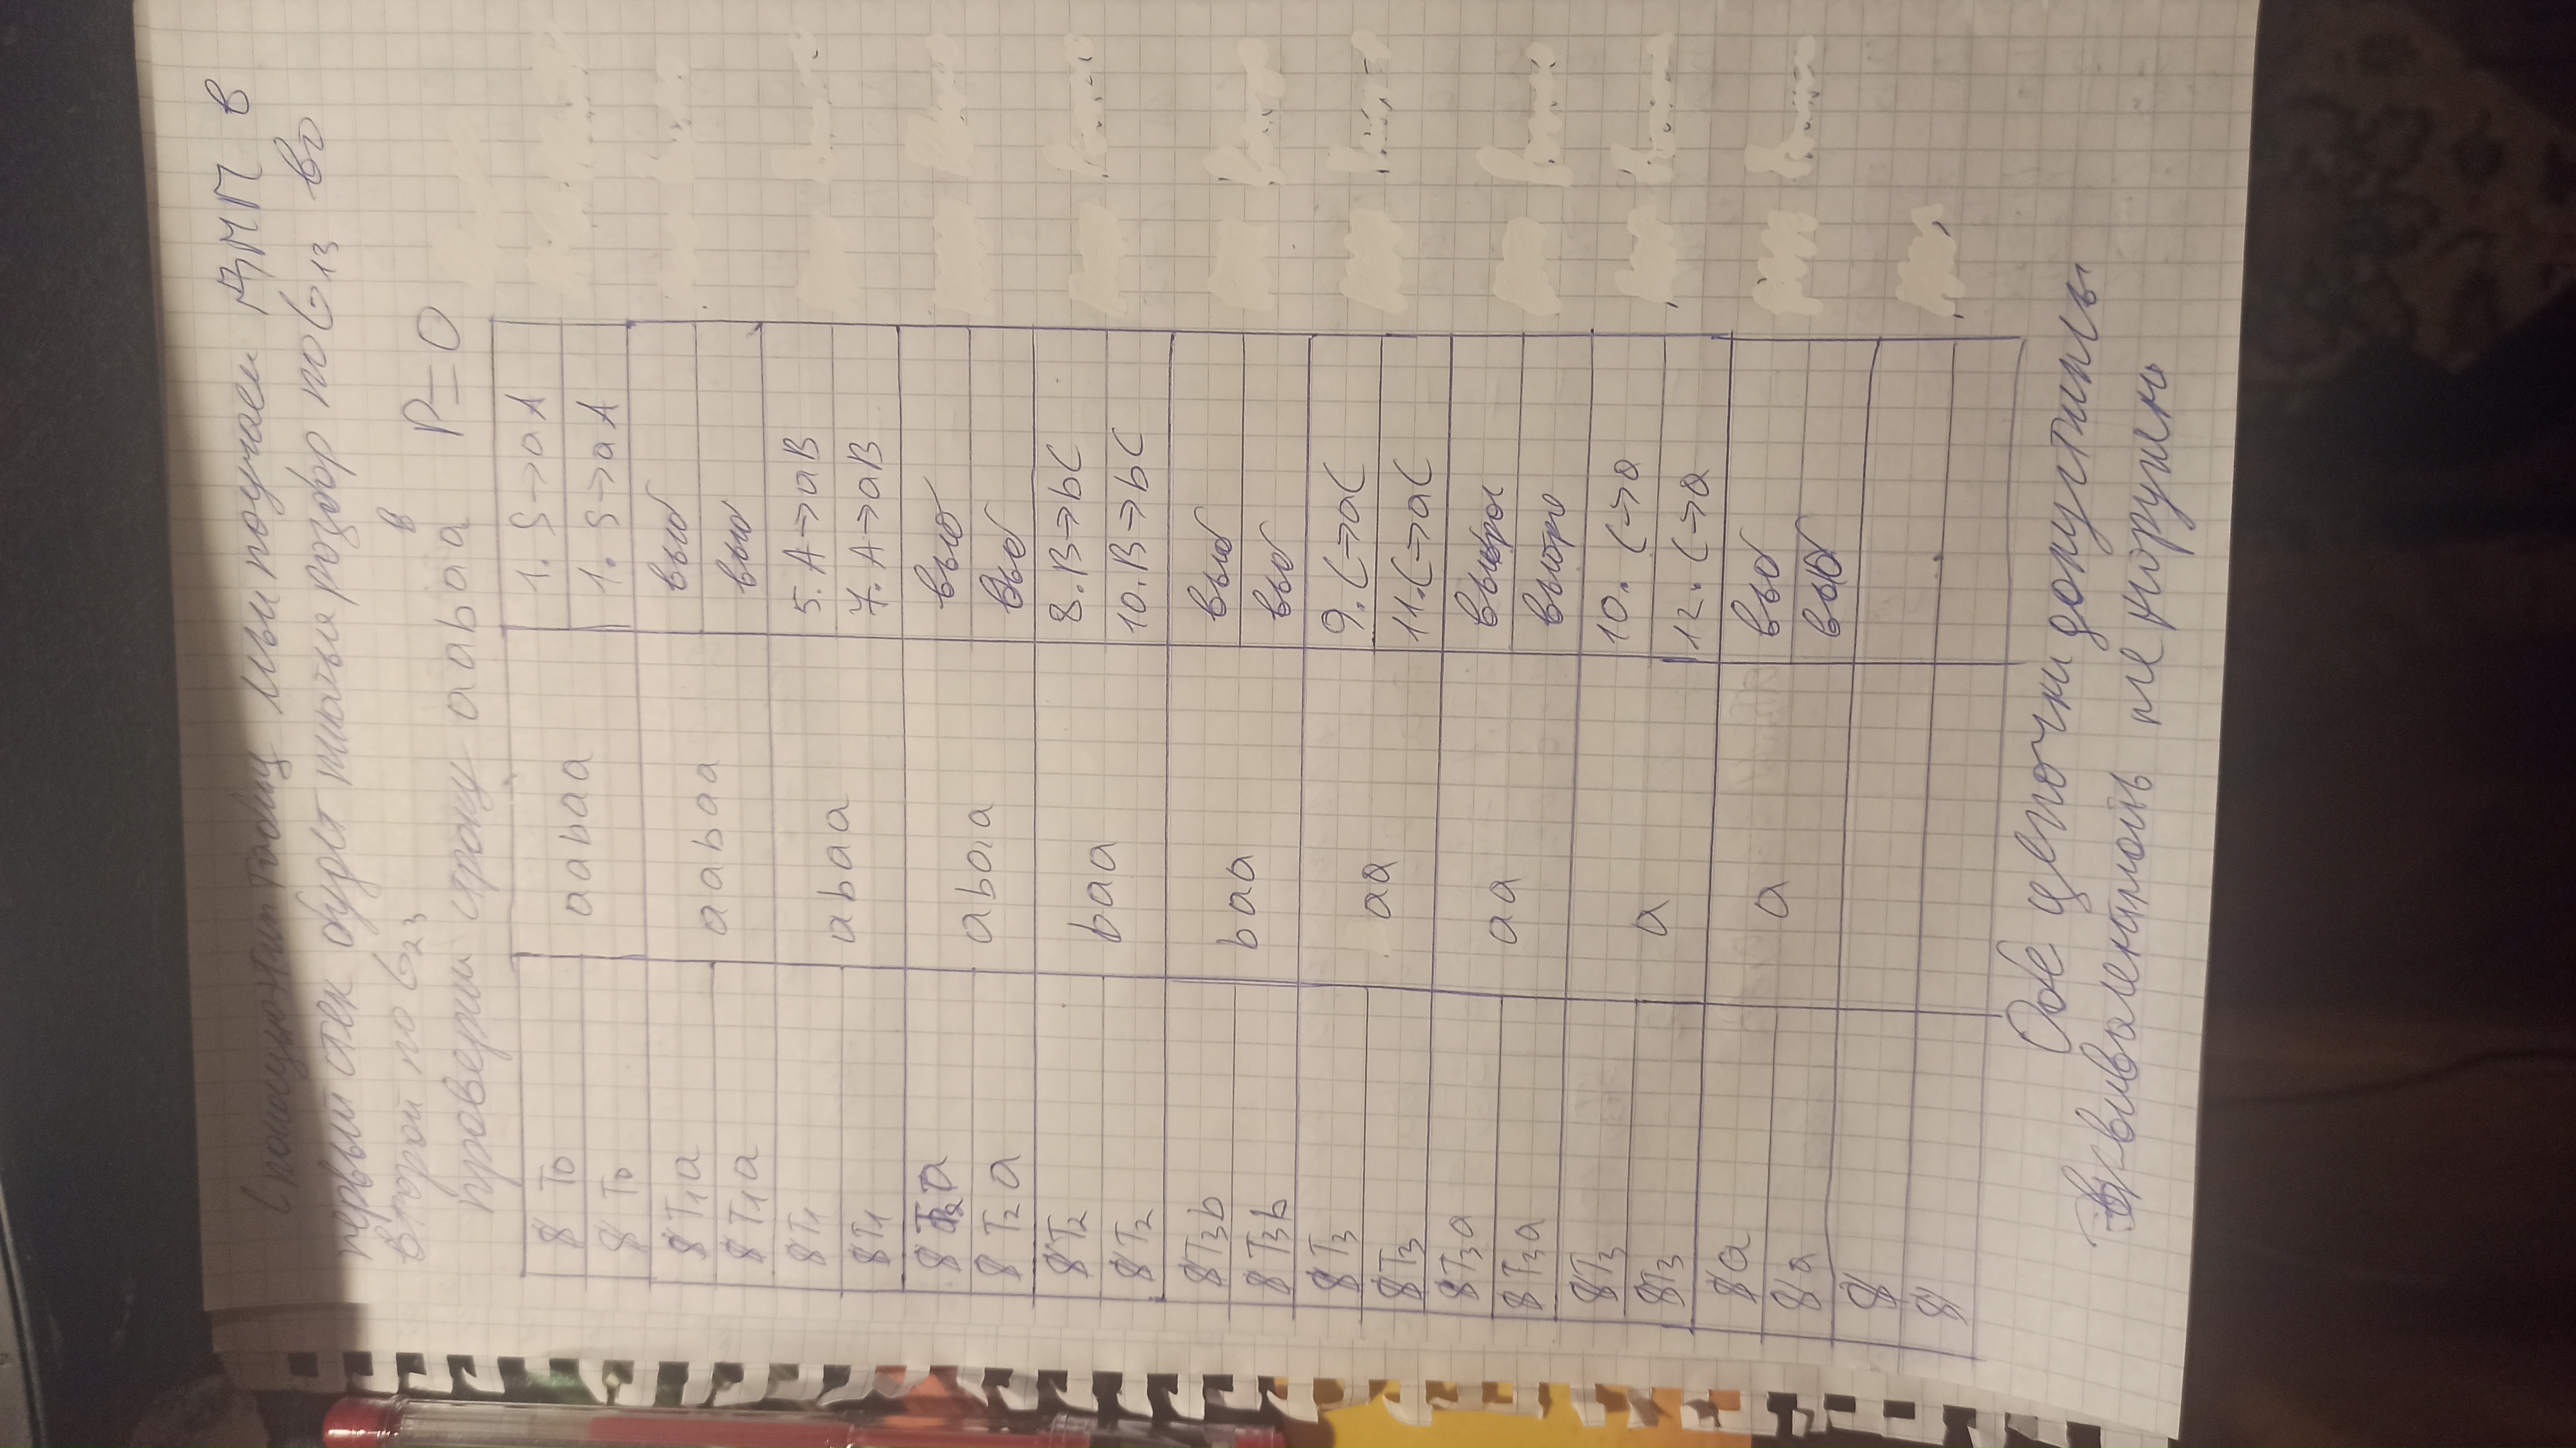 С помощью этих таблиц мы получаем ДМП в
первый стек будет писаться разбор по G₁₃ во
второй по G₂₃
в
проверим строку aabaa P=0
$ T₀ aabaa 1. S→aA
$ T₀ 1. S→aA
$T₁a aabaa выб
$T₁a выб
$T₁ abaa 5. A→aB
$T₁ 7. A→aB
$ T₂a abaa выб
$ T₂a выб
$T₂ baa 8. B→bC
$T₂ 10. B→bC
$T₃b baa выб
$T₃b выб
$T₃ aa 9. C→aC
$T₃ 11. C→aC
$T₃a aa выброс
$T₃a выбро
$T₃ a 10. C→a
$T₃ 12. C→a
$a a выб
$a выб
$
$
Обе цепочки допустимы
Эквивалентность не нарушена